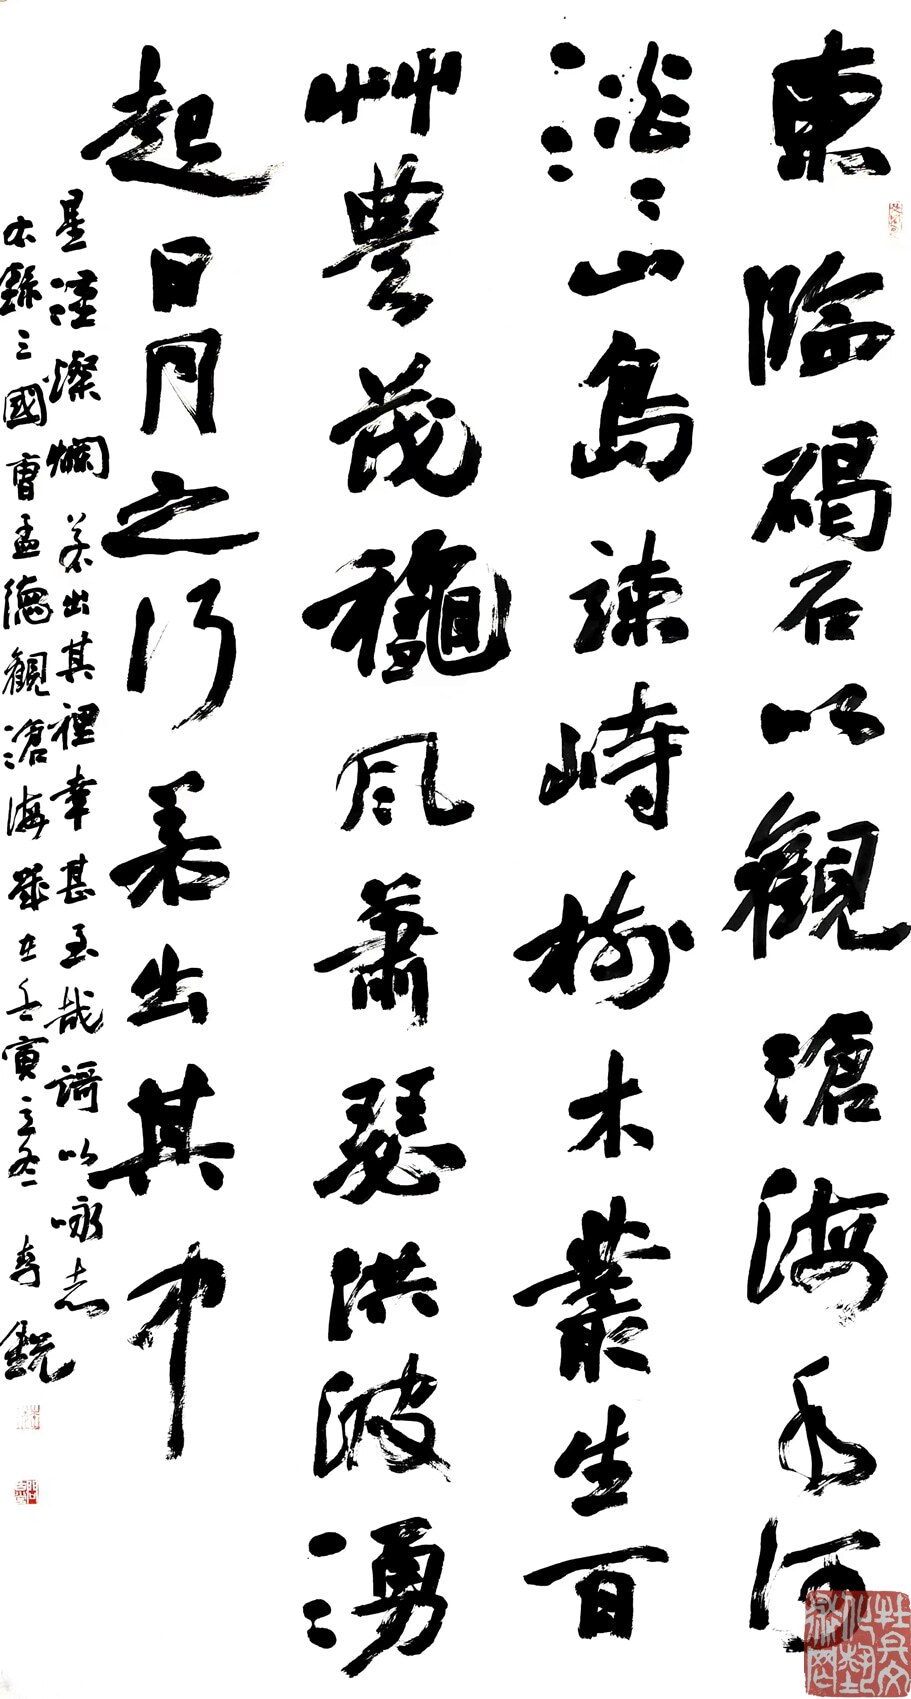 東臨碣石以觀滄海水何
淡〻山島竦峙樹木叢生百
艸豐茂龝風蕭瑟洪波湧
起日月之行若出其中
星漢燦爛若出其裡幸甚至哉謌以咏志
右錄三國曹孟德觀滄海歲在壬寅之冬 李銳